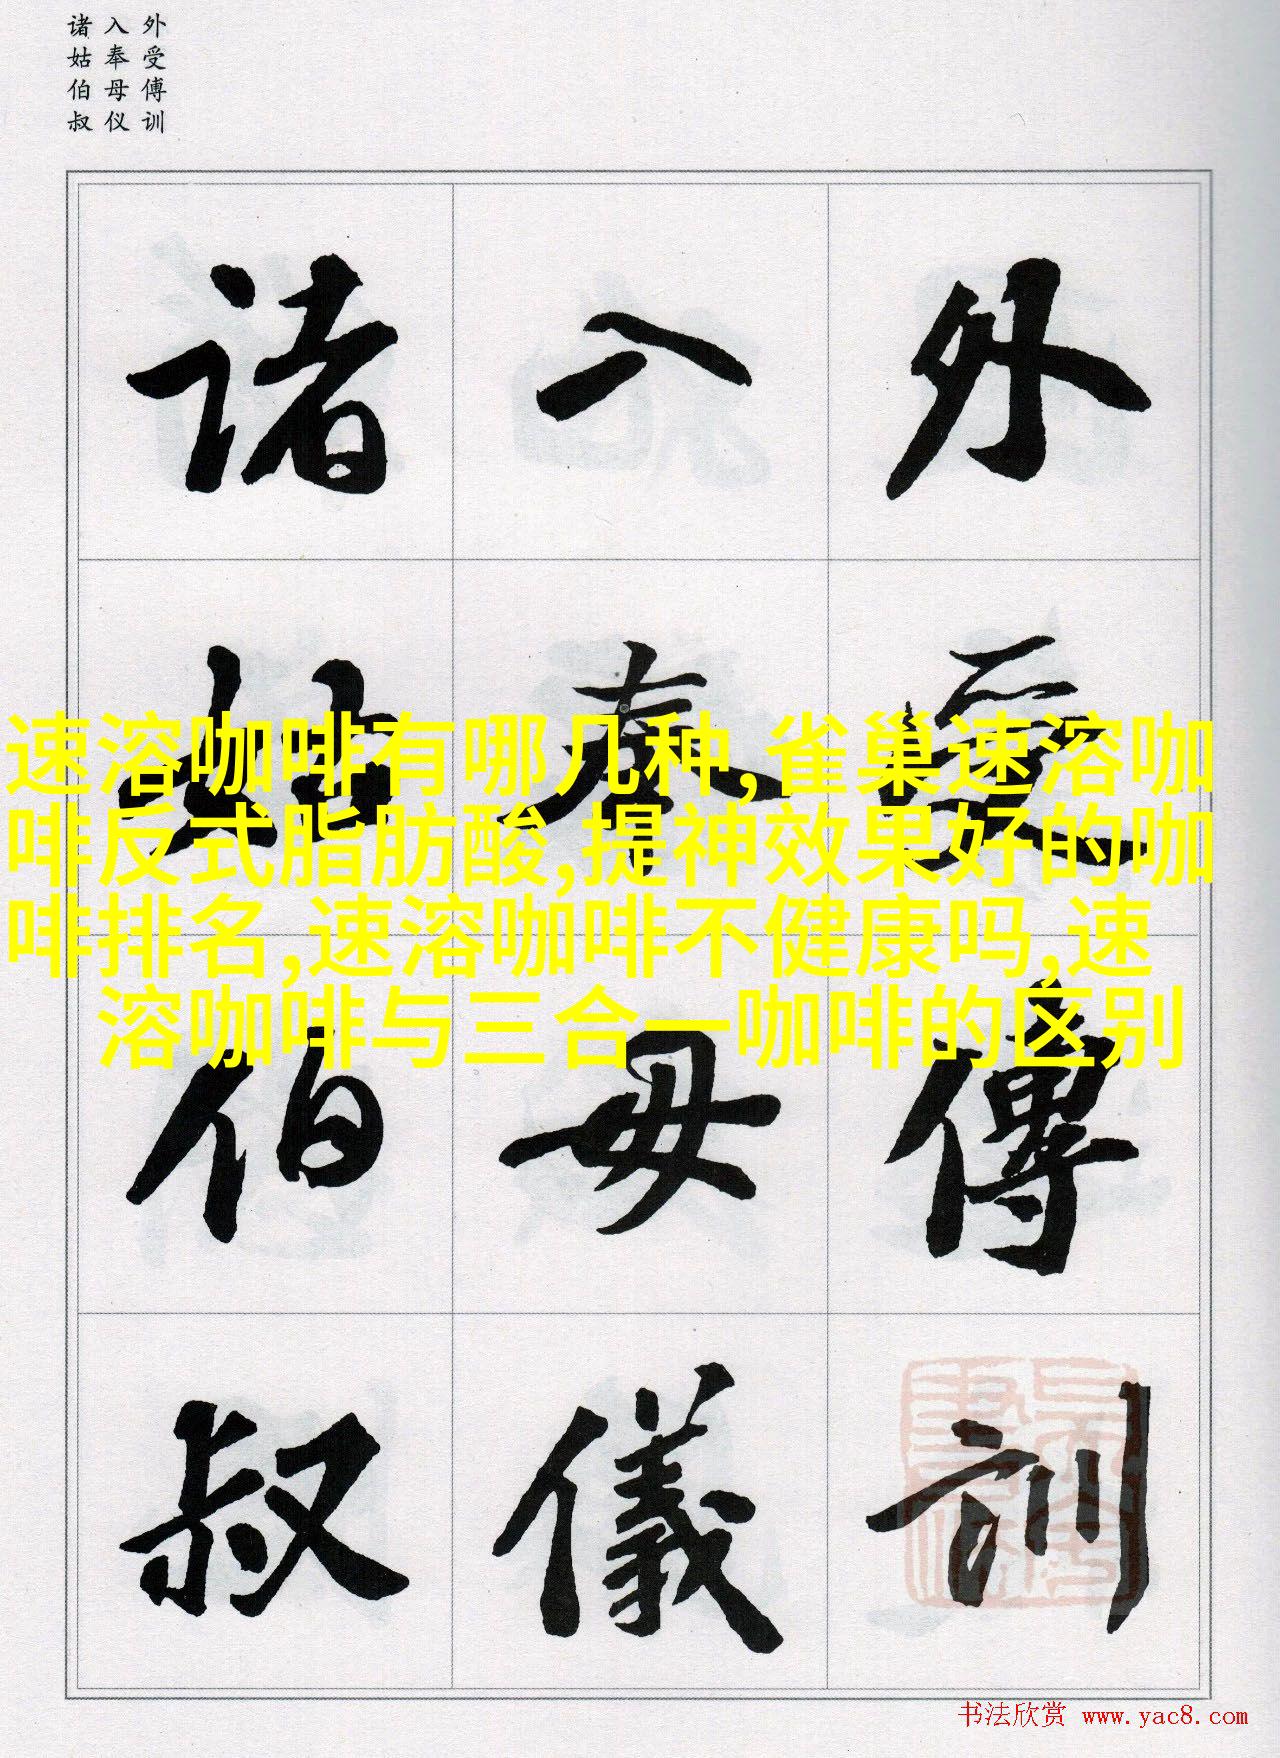 外受傅训
入奉母仪
诸姑伯叔
外受傅訓
入奉母儀
诸姑伯叔
速溶咖啡有哪几种,雀巢速溶咖
啡反式脂肪酸,提神效果好的咖
啡排名,速溶咖啡不健康吗,速
溶咖啡与三合一咖啡的区别
书法欣赏 www.yac8.com